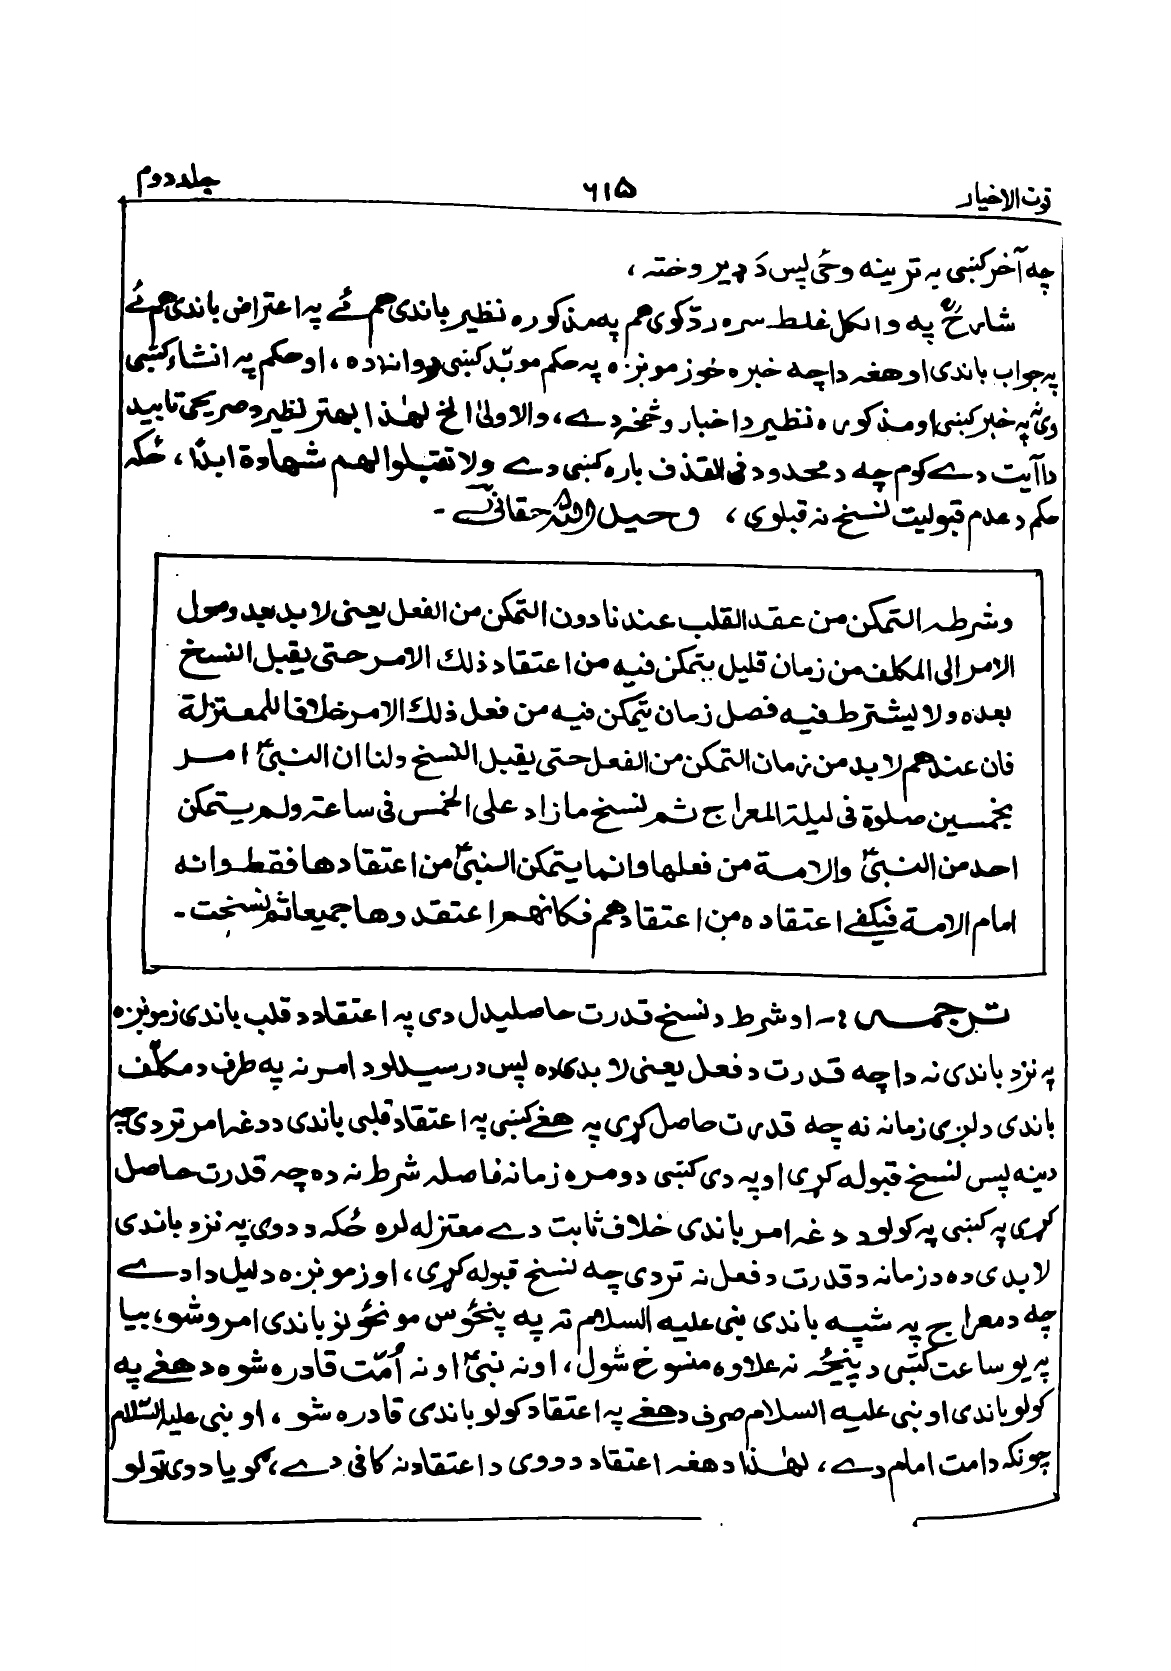 قوت الاخیار ۶۱۵ جلد دوم
چه آخر کښې به ترینه وځي پس د ډیر وخته ،
شارحؒ په والکل غلط سره ردّ کوی هم په مذکوره نظیر باندې هم ئے په اعتراض باندې هم ئے
په جواب باندې او هغه دا چه خبره خو زمونږه په حکم موبّد کښې روانه ده ، او حکم په انشاء کښې
وي نه په خبر کښې او مذکوره نظیر د اخبار و څخه دے ، والاولیٰ الخ لهٰذا بهتر نظیر و صریحی تایید
دا آیت دے کوم چه د محدود فی القذف باره کښې دے ولا تقبلوا لهم شهادة ابدًا ، ځکه
حکم د عدم قبولیت نسخ نه قبلوي ، وحید اللّٰه حقانی ۔
وشرطه التمکن من عقد القلب عندنا دون التمکن من الفعل یعنی لا بد بعد وصول
الامر الی المکلف من زمان قلیل یتمکن فیه من اعتقاد ذلك الامر حتی یقبل النسخ
بعده ولا یشترط فیه فصل زمان یتمکن فیه من فعل ذلك الامر خلافا للمعتزلة
فان عندهم لا بد من زمان التمکن من الفعل حتی یقبل النسخ ولنا ان النبیؐ امر
بخمسین صلوة فی لیلة المعراج ثم نسخ ما زاد علی الخمس فی ساعة ولم یتمکن
احد من النبیؐ والامة من فعلها وانما یتمکن النبیؐ من اعتقادها فقط وانه
امام الامة فیکفی اعتقاده من اعتقادهم فکانهم اعتقدوها جمیعا ثم نسخت ۔
ترجمه :- او شرط د نسخ قدرت حاصلیدل دي په اعتقاد د قلب باندې زمونږه
په نزد باندې نه دا چه قدرت د فعل یعنی لا بدي ده پس د رسیدلو د امر نه په طرف د مکلّف
باندې د لږې زمانه نه چه قدرت حاصل کړي په هغے کښې په اعتقاد قلبی باندې د دغه امر تردې چه
دینه پس نسخ قبوله کړي او په دې کښې دومره زمانه فاصله شرط نه ده چه قدرت حاصل
کړي په کښې په کولو د دغه امر باندې خلاف ثابت دے معتزله لره ځکه د دوي په نزد باندې
لا بدي ده د زمانه د قدرت د فعل نه تردې چه نسخ قبوله کړي ، او زمونږه دلیل دا دے
چه د معراج په شپه باندې نبی علیه السلام ته په پنځوس مونځونو باندې امر وشو ، بیا
په یو ساعت کښې د پنځه نه علاوه منسوخ شول ، او نه نبیؐ او نه اُمّت قادره شوه د هغے په
کولو باندې او نبی علیه السلام صرف د هغے په اعتقاد کولو باندې قادره شو ، او نبی علیه السّلام
چونکه د امت امام دے ، لهٰذا د هغه اعتقاد د دوي د اعتقاد نه کافي دے ، گویا دوي ټولو